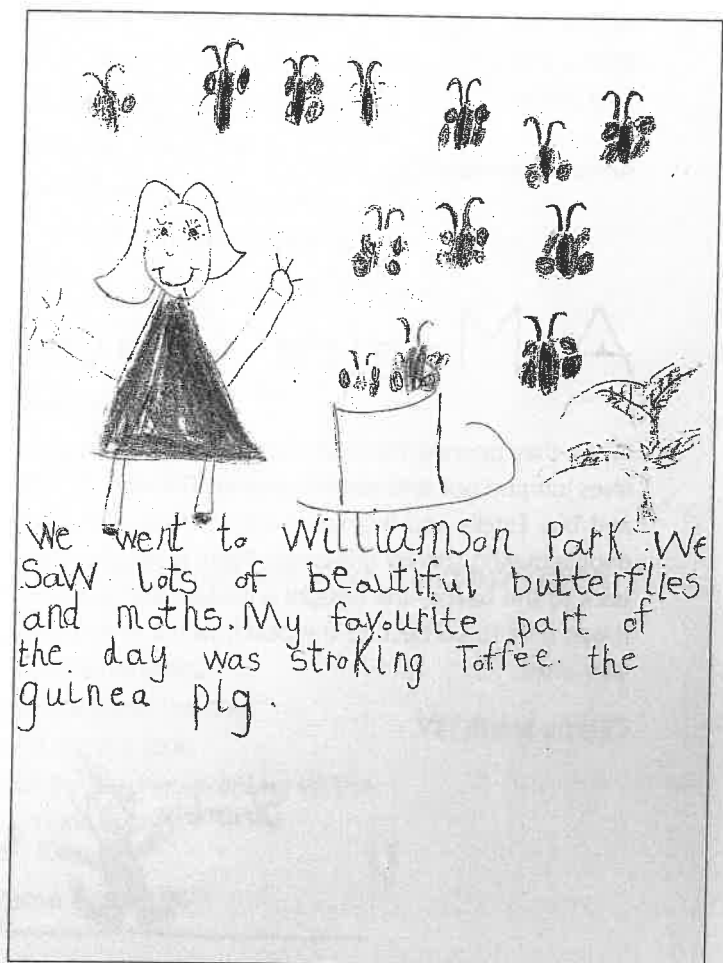 We went to Williamson Park We
Saw lots of beautiful butterflies
and moths. My favourite part of
the day was stroking Toffee. the
guinea pig.